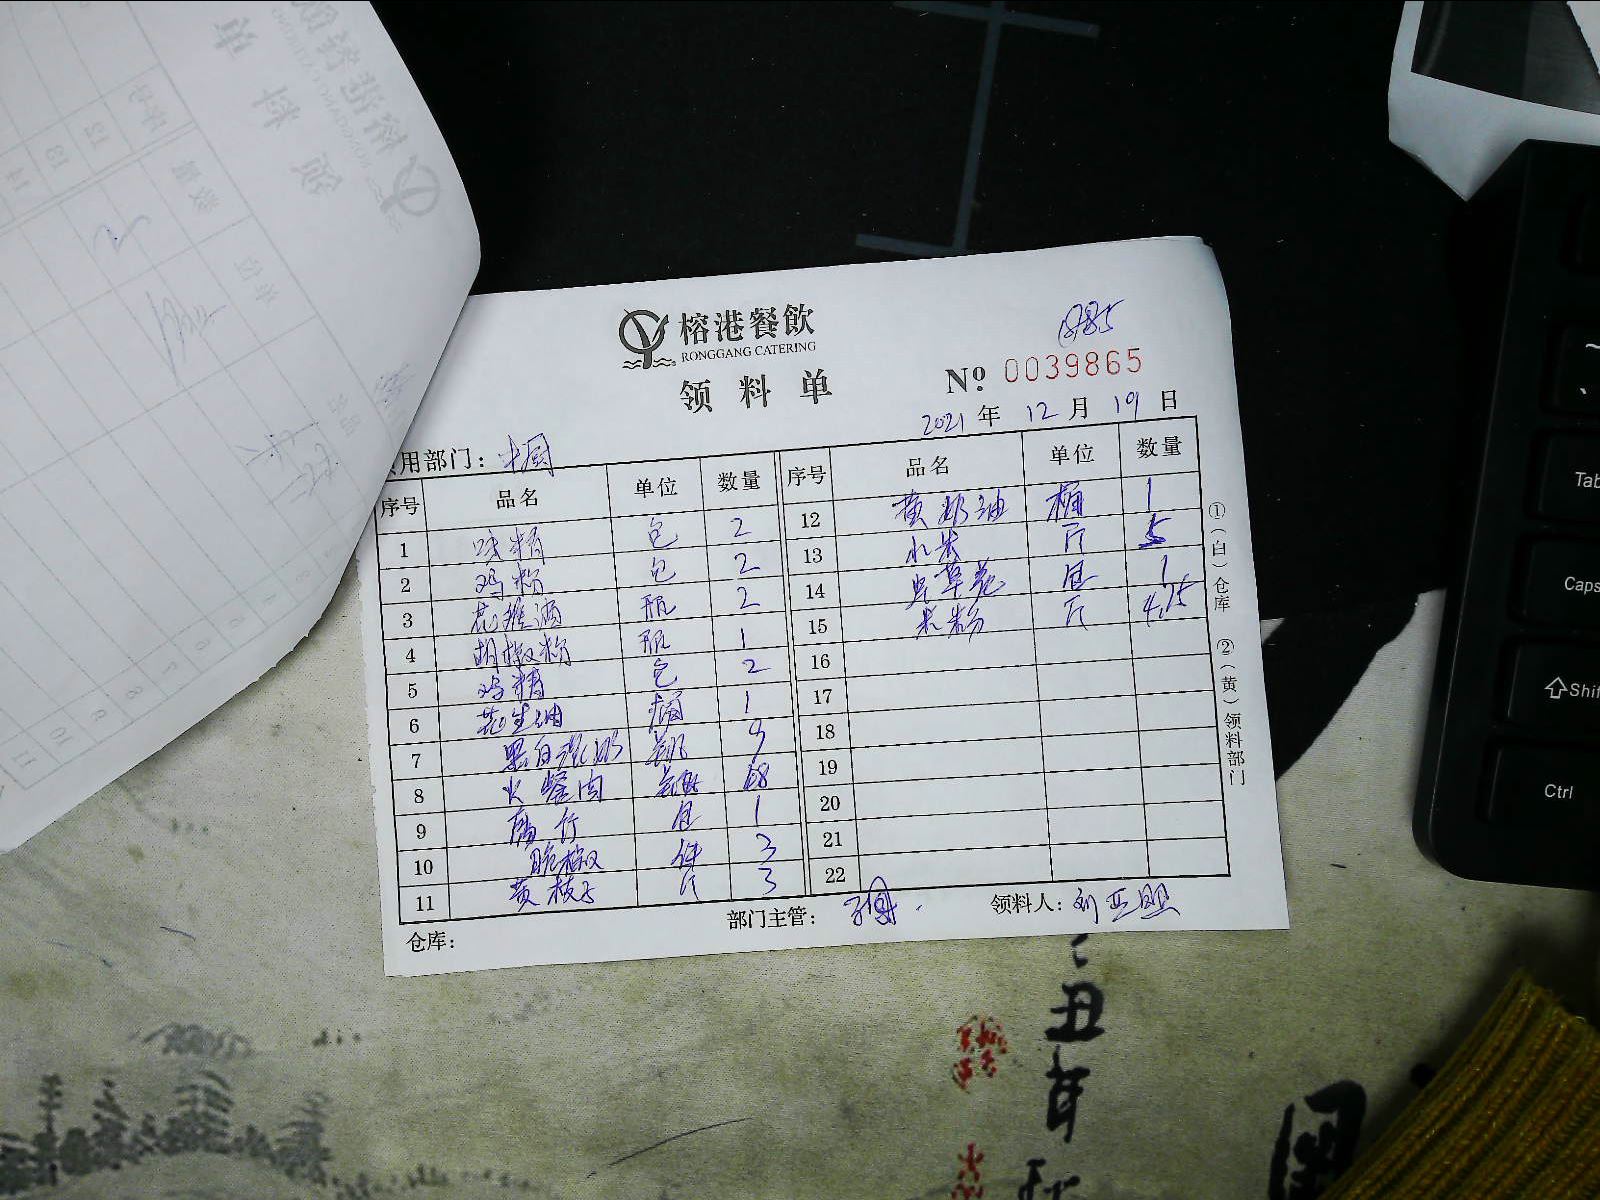 榕港餐飲
RONGGANG CATERING
领料单
№ 0039865
2021 年 12 月 19 日
用部门：中厨
序号 品名 单位 数量
1 味精 包 2
2 鸡粉 包 2
3 花雕酒 瓶 2
4 胡椒粉 瓶 1
5 鸡精 包 2
6 花生油 桶 1
7 黑白淡奶 罐 9
8 火餐肉 罐
9 包 1
10 脆椒 件 3
11 黄枝子 斤 3
序号 品名 单位 数量
12 黄奶油 桶 1
13 小米 斤 5
14 虫草花 包 1
15 米粉 斤 4.75
16
17
18
19
20
21
22
①（白）仓库 ②（黄）领料部门
仓库：
部门主管：
领料人：刘亚
丑年
Tab
Caps
Shif
Ctrl